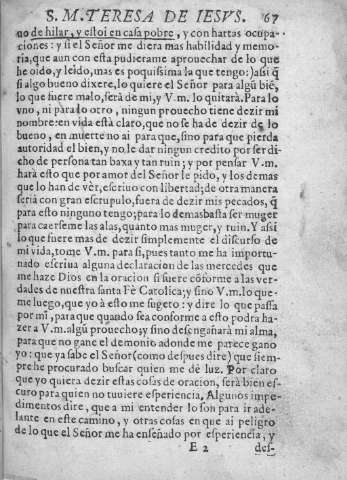 S. M. TERESA DE IESVS. 67
no de hilar, y estoi en casa pobre, y con hartas ocupa-
ciones: y si el Señor me diera mas habilidad y memo-
ria, que aun con esta pudierame aprouechar de lo que
he oido, y leido, mas es poquissima la que tengo: assi q̃
si algo bueno dixere, lo quiere el Señor para algũ biẽ,
lo que fuere malo, será de mi, y V.m. lo quitará. Para lo
vno, ni para lo otro, ningun prouecho tiene dezir mi
nombre: en vida está claro, que no se ha de dezir de lo
bueno, en muerte no ai para que, sino para que pierda
autoridad el bien, y no le dar ningun credito por ser di-
cho de persona tan baxa y tan ruin; y por pensar V.m.
hará esto que por amor del Señor le pido, y los demas
que lo han de vèr, escriuo con libertad; de otra manera
seria con gran escrupulo, fuera de dezir mis pecados, q̃
para esto ninguno tengo; para lo demas basta ser muger
para caerseme las alas, quanto mas muger, y ruin. Y assi
lo que fuere mas de dezir simplemente el discurso de
mi vida, tome V.m. para si, pues tanto me ha importu-
nado escriua alguna declaracion de las mercedes que
me haze Dios en la oracion si fuere cõforme a las ver-
dades de nuestra santa Fè Catolica; y sino V.m. lo que-
me luego, que yo à esto me sugeto: y dire lo que passa
por mi, para que quando sea conforme a esto podra ha-
zer a V.m. algũ prouecho; y sino desengañarà mi alma,
para que no gane el demonio adonde me parece gano
yo: que ya sabe el Señor (como despues dire) que siem-
pre he procurado buscar quien me dè luz. Por claro
que yo quiera dezir estas cosas de oracion, serà bien es-
curo para quien no tuuiere esperiencia. Algunos impe-
dimentos dire, que a mi entender lo son para ir ade-
lante en este camino, y otras cosas en que ai peligro
de lo que el Señor me ha enseñado por esperiencia, y
E 2 des-